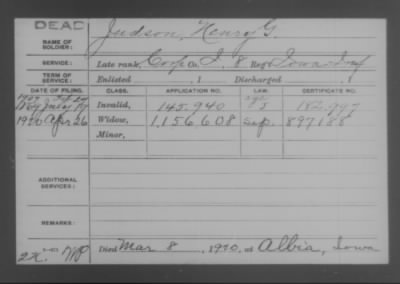 DEAD
NAME OF SOLDIER: Judson, Henry G.
SERVICE: Late rank, Corp Co. I, 8 Reg't Iowa Inf
TERM OF SERVICE: Enlisted , 1 Discharged , 1
DATE OF FILING. CLASS. APPLICATION NO. LAW. CERTIFICATE NO.
1879 July 19 Invalid, 145.940 182.997
1920 Apr 26 Widow, 1.156.608 Sep. 897188
Minor,
ADDITIONAL SERVICES:
REMARKS:
Died Mar 8, 1920, at Albia, Iowa